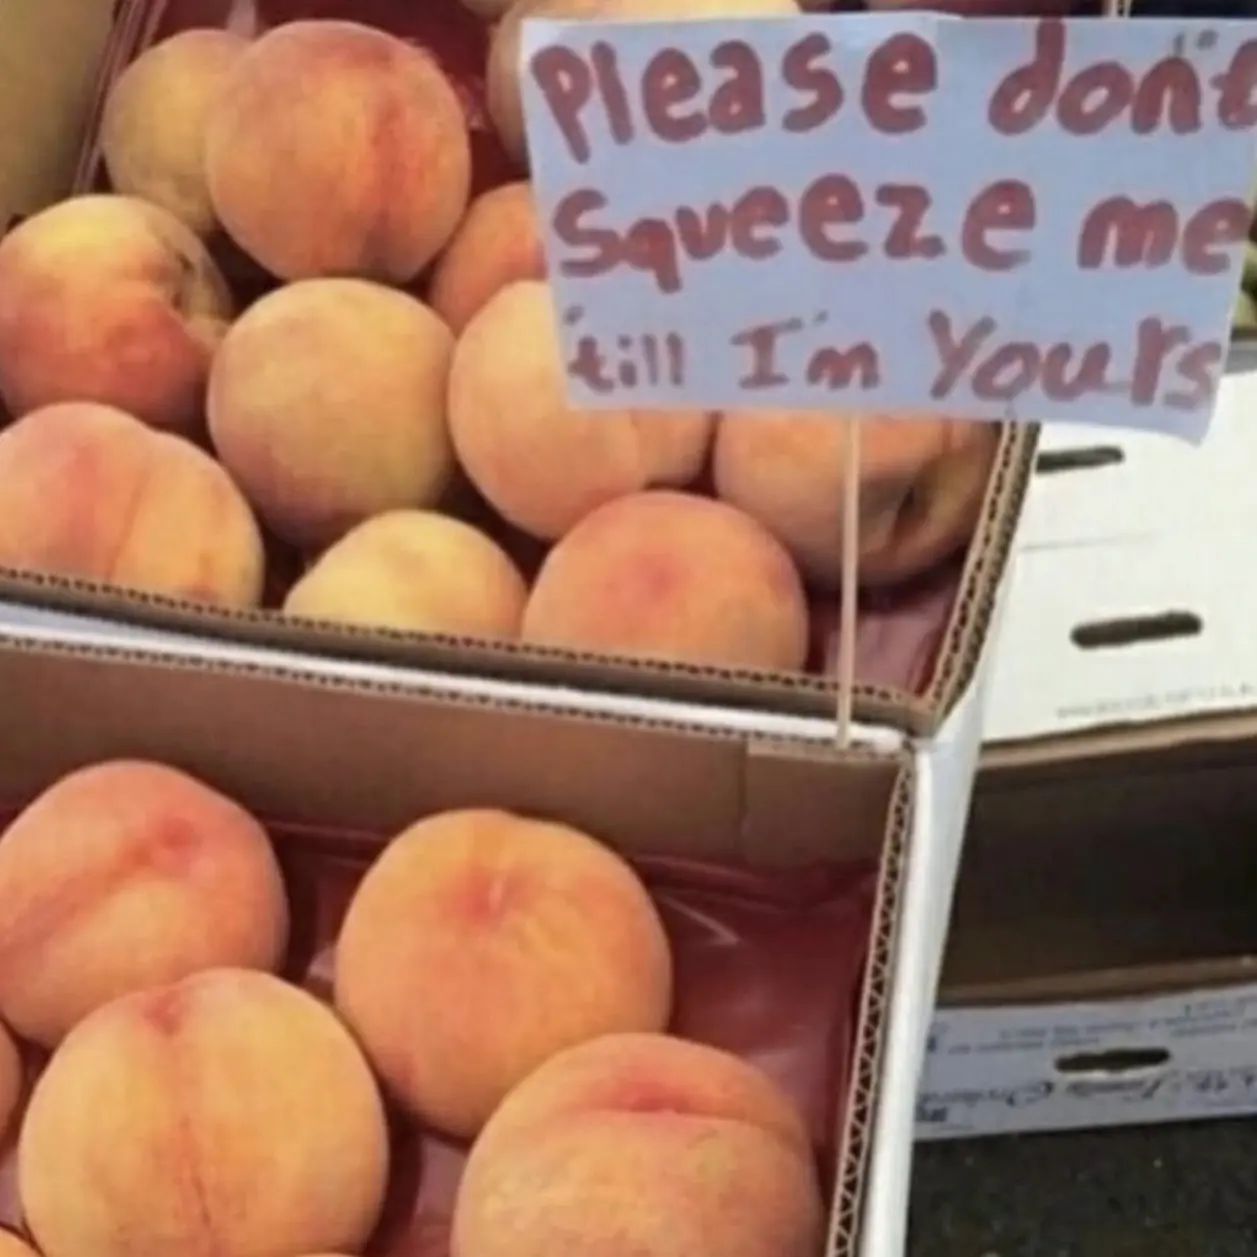 Please don't
Squeeze me
'till I'm Yours